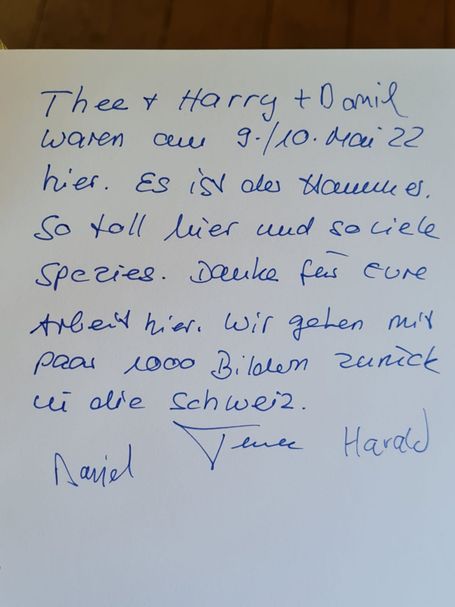 Thee + Harry + Daniel
waren am 9./10. Mai 22
hier. Es ist der Hammer.
So toll hier und so viele
Spezies. Danke für Eure
Arbeit hier. Wir gehen mit
paar 1000 Bildern zurück
in die Schweiz.
Daniel Harald